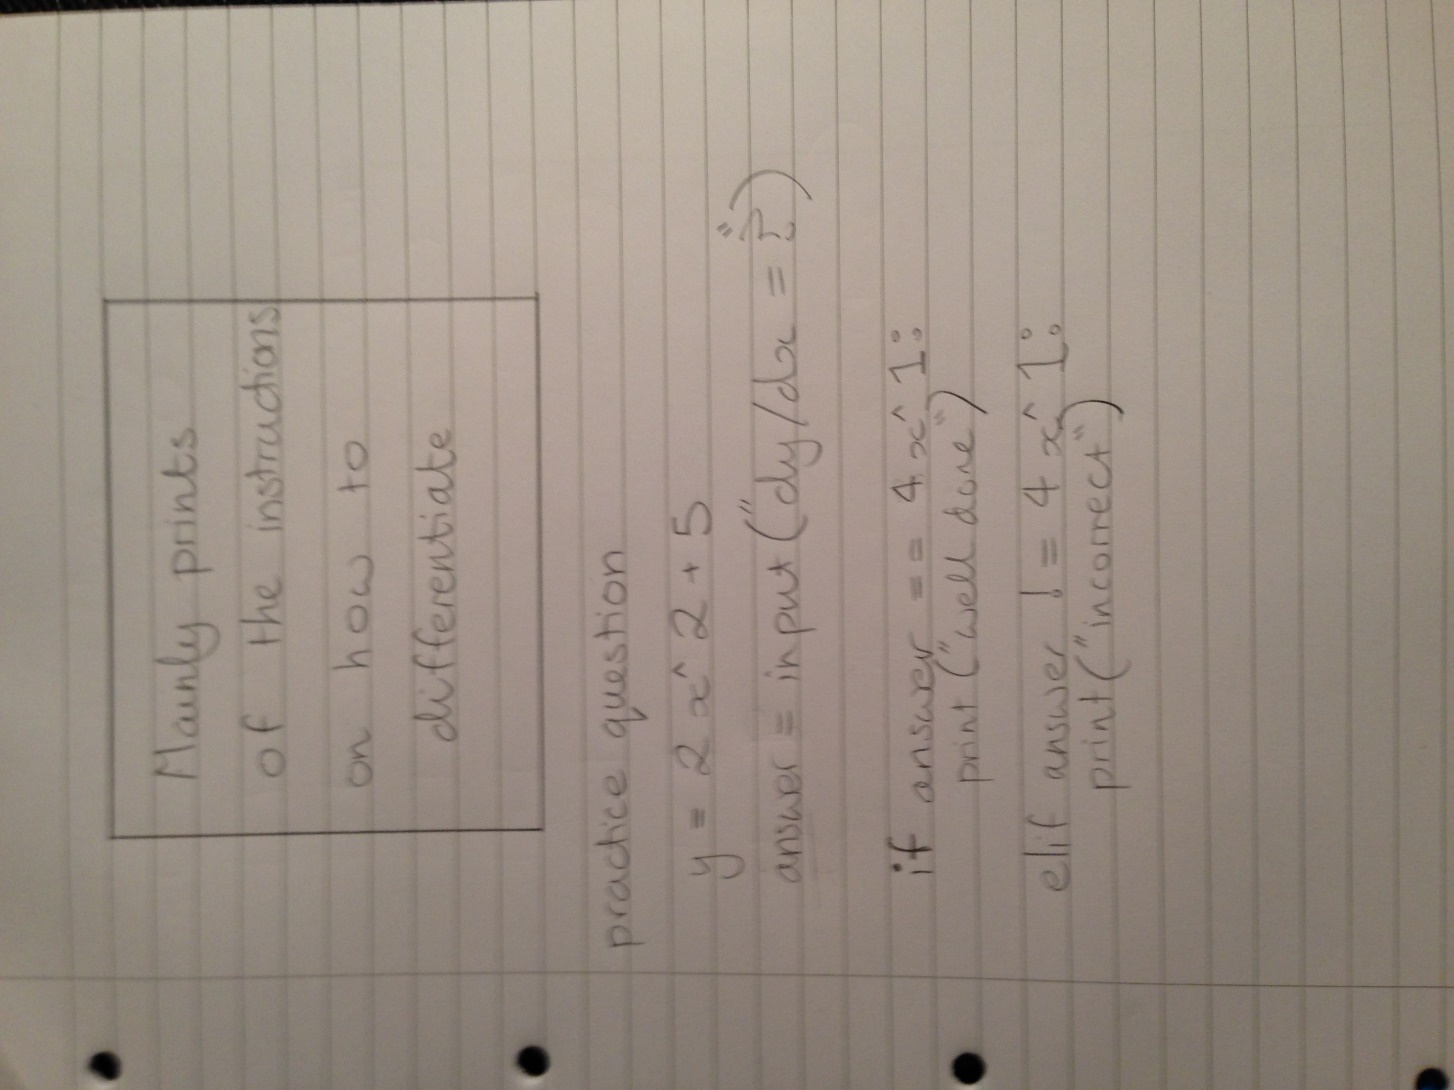 Mainly prints
of the instructions
on how to
differentiate
practice question
y = 2x^2+5
answer = input("dy/dx = ?")
if answer == 4x^1:
print("well done")
elif answer != 4x^1:
print("incorrect")